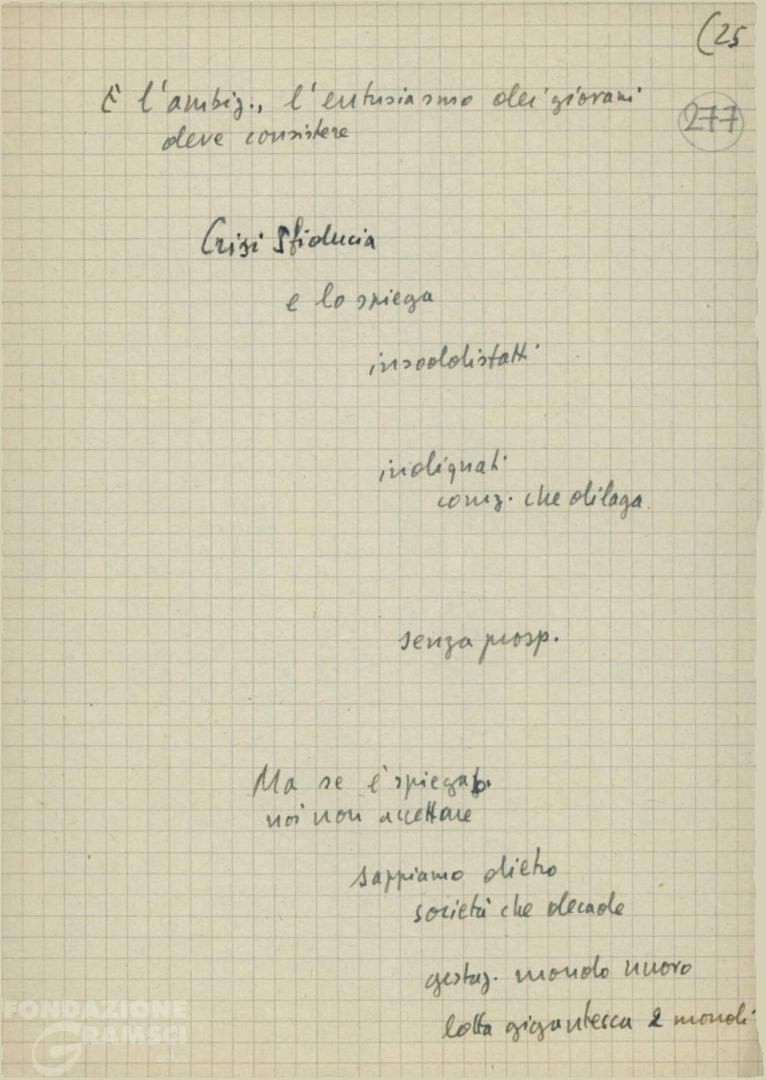 (25
277
È l'ambiz., l'entusiasmo dei giovani
deve consistere
Crisi Sfiducia
e lo spiega
insoddisfatti
indignati
che dilaga
senza prosp.
Ma se è spiegab.
noi non accettare
sappiamo dietro
società che decade
gestaz. mondo nuovo
lotta gigantesca 2 mondi
FONDAZIONE
GRAMSCI